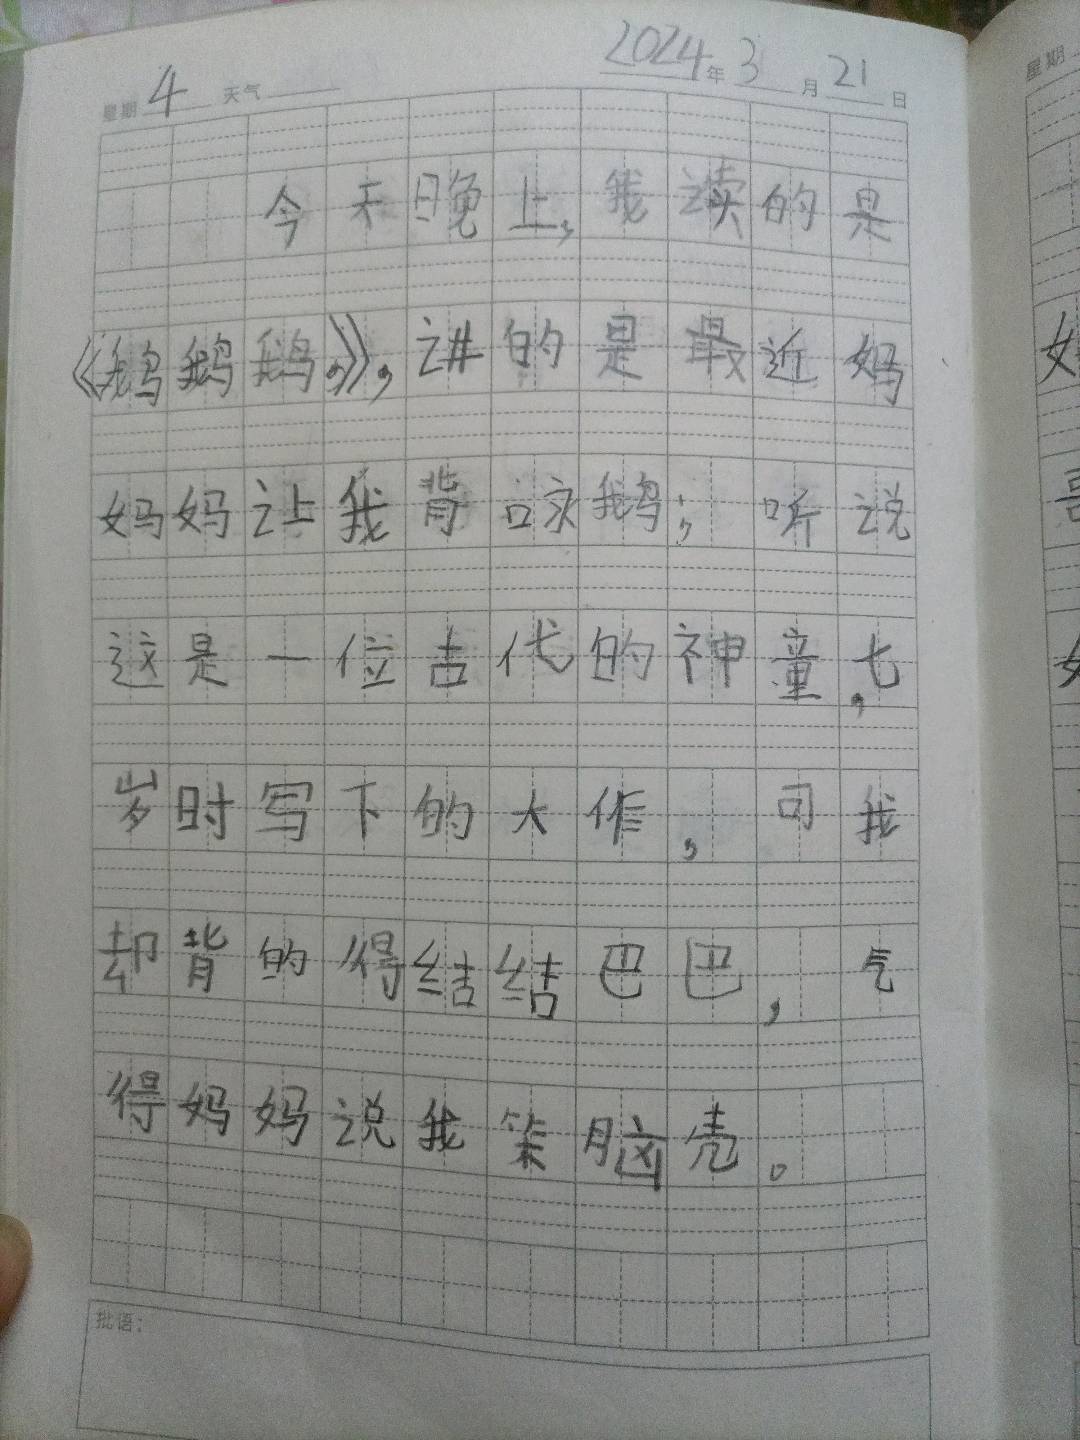 2024年3月21日
星期4 天气
今天晚上,我读的是
《鹅鹅鹅,》,讲的是最近妈
妈妈让我背咏鹅;听说
这是一位古代的神童,七
岁时写下的大作,司我
却背的得结结巴巴,气
得妈妈说我笨脑壳。
批语:
星期